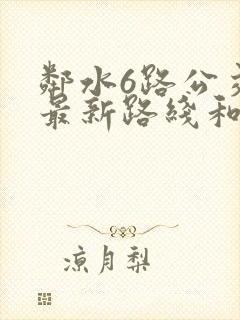 鄰水6路公交
最新路綫和
凉月梨